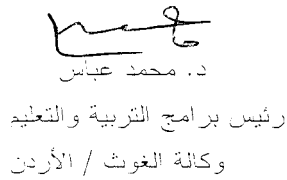 د. محمد عباس
رئيس برامج التربية والتعليم
وكالة الغوث / الأردن